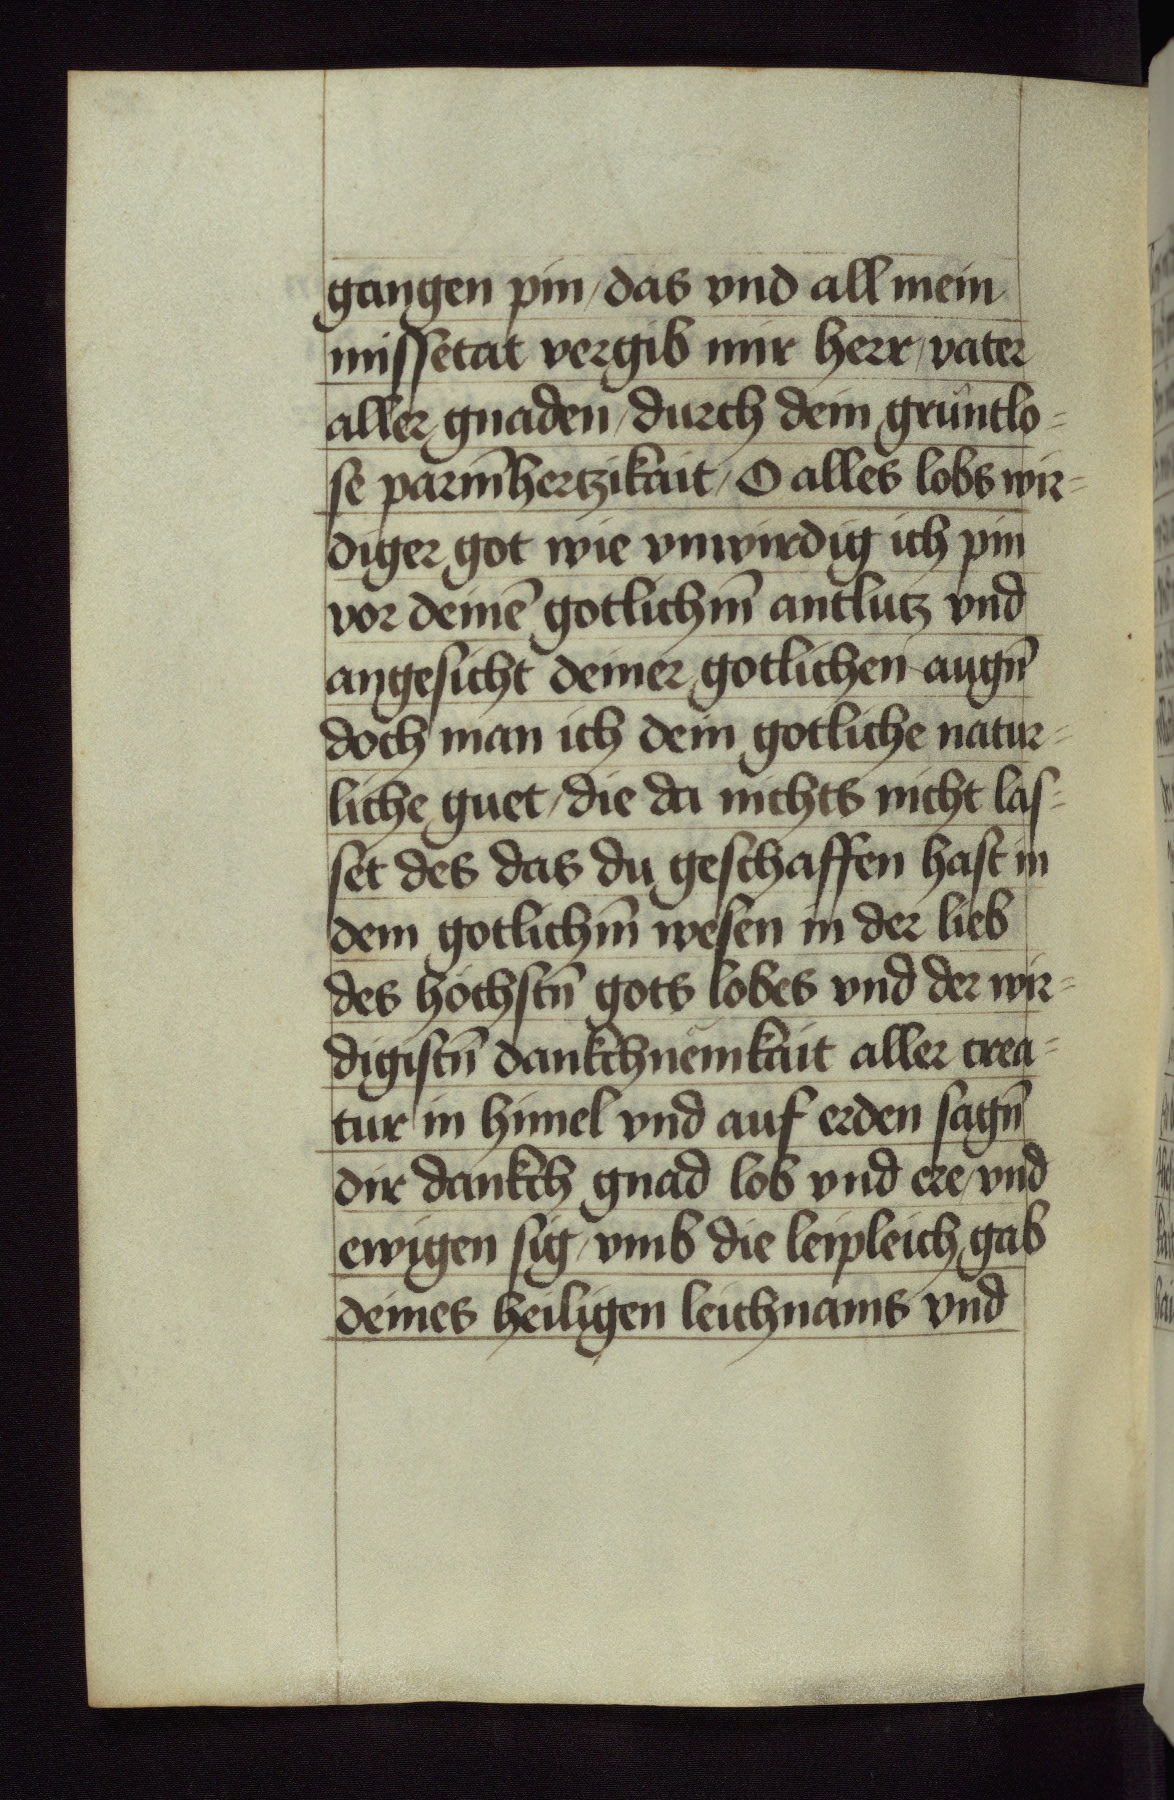 gangen pin / das vnd all mein
missetat vergib mir herr / vater
aller gnaden / durch dein grůntlo=
se parm̄hertzikait / O alles lobs wir=
diger got wie vnwirdig ich pin
vor deinē gotlichm̄ antlutz vnd
angesicht deiner gotlichen augn̄
doch man ich dein gotliche natur=
liche guet / die da nichts nicht las=
set des das du geschaffen hast in
dem gotlichm̄ wesen in der lieb
des hochstn̄ gots lobes vnd der wir=
digistn̄ dankchnemkait aller crea=
tur in himel vnd auf erden sagn̄
dir dankch gnad lob vnd ere / vnd
ewigen sig / vmb die leipleich gab
deines heiligen leichnams vnd